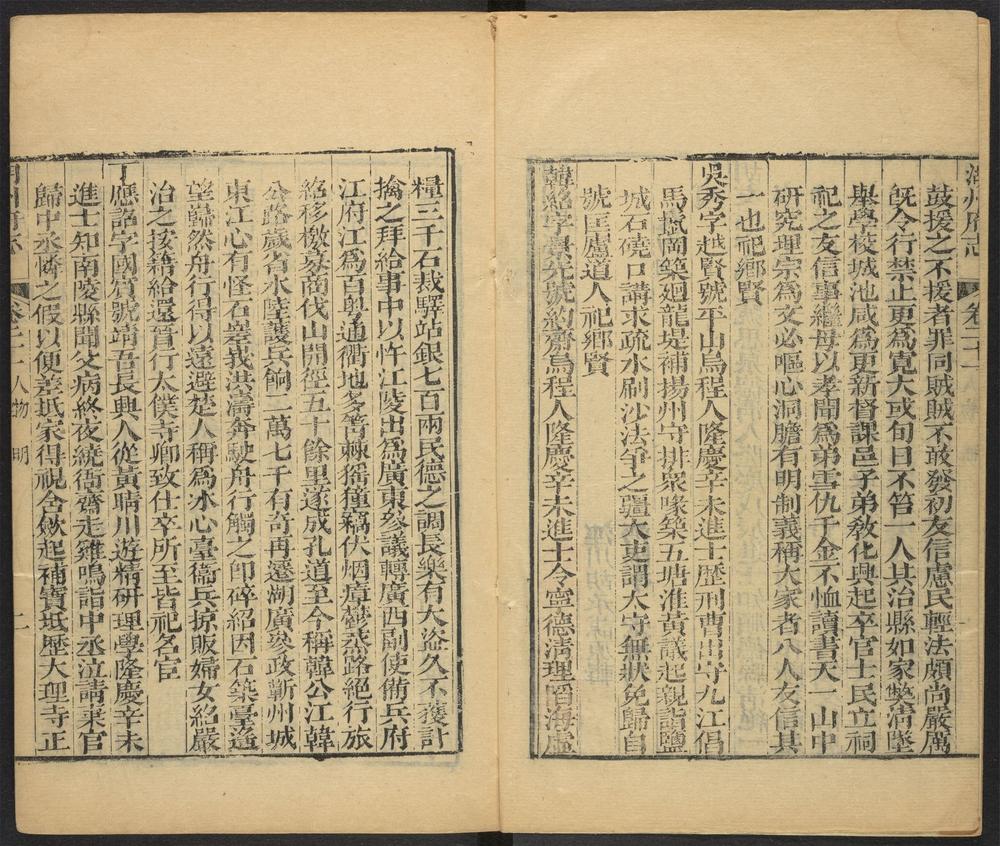 湖州府志 卷二十
鼓援之不援者罪同賊賊不敢發初友信慮民輕法頗尚嚴厲
既令行禁止更爲寬大或旬日不笞一人其治縣如家弊淸墜
舉學校城池咸爲更新督課邑子弟敎化興起卒官士民立祠
祀之友信事繼母以孝聞爲弟雪仇千金不恤讀書天一山中
研究理宗爲文必嘔心洞膽有明制義稱大家者八人友信其
一也祀鄉賢
吳秀字越賢號平山烏程人隆慶辛未進士歷刑曹出守九江倡
馬搣岡築廻龍堤補揚州守排衆喙築五塘淮黃議起親詣鹽
城石䃶口講求疏水刷沙法爭之疆大吏謂太守無狀免歸自
號匡廬道人祀鄉賢
韓紹字景先號約齋烏程人隆慶辛未進士令寧德淸理陷海虛
糧三千石裁驛站銀七百兩民德之調長樂有大盜久不獲計
擒之拜給事中以忤江陵出爲廣東參議轉廣西副使衞兵府
江府江爲百粵通衢地多箐棘猺獞竊伏烟瘴鬱蒸路絕行旅
紹移檄募商伐山開徑五十餘里遂成孔道至今稱韓公江韓
公路歲省水陸護兵餉二萬七千有奇再遷湖廣參政蘄州城
東江心有怪石㟧峩洪濤奔駛舟行觸之卽碎紹因石築臺遙
望巋然舟行得以遠避楚人稱爲冰心臺衞兵掠販婦女紹嚴
治之按籍給還晉行太僕寺卿致仕卒所至皆祀名宦
丁應詔字國賓號靖吾長興人從黃晴川遊精研理學隆慶辛未
進士知南陵縣聞父病終夜繞衙齋走雞鳴詣中丞泣請棄官
歸中丞憐之假以便差抵家得視含歛起補寶坻歷大理寺正
湖州府志 卷二十 人物 明 二